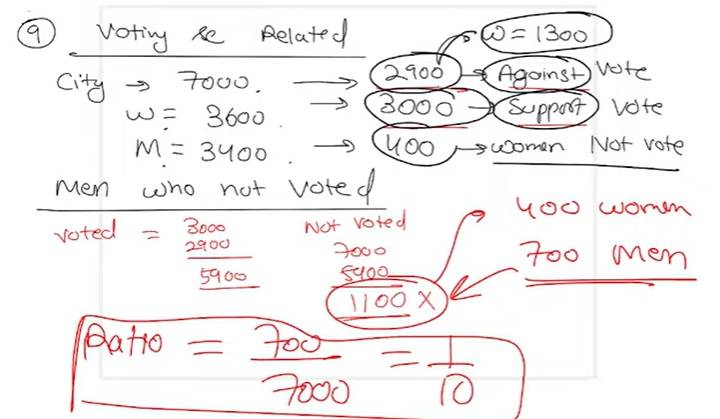 9 Voting & Related
W = 1300
City → 7000. → 2900 → Against Vote
W = 3600. → 3000 → Support Vote
M = 3400. → 400 → women Not vote
Men who not Voted
400 women
700 Men
Voted = 3000
2900
5900
Not Voted
7000
5900
1100 X
Ratio = 700/7000 = 1/10